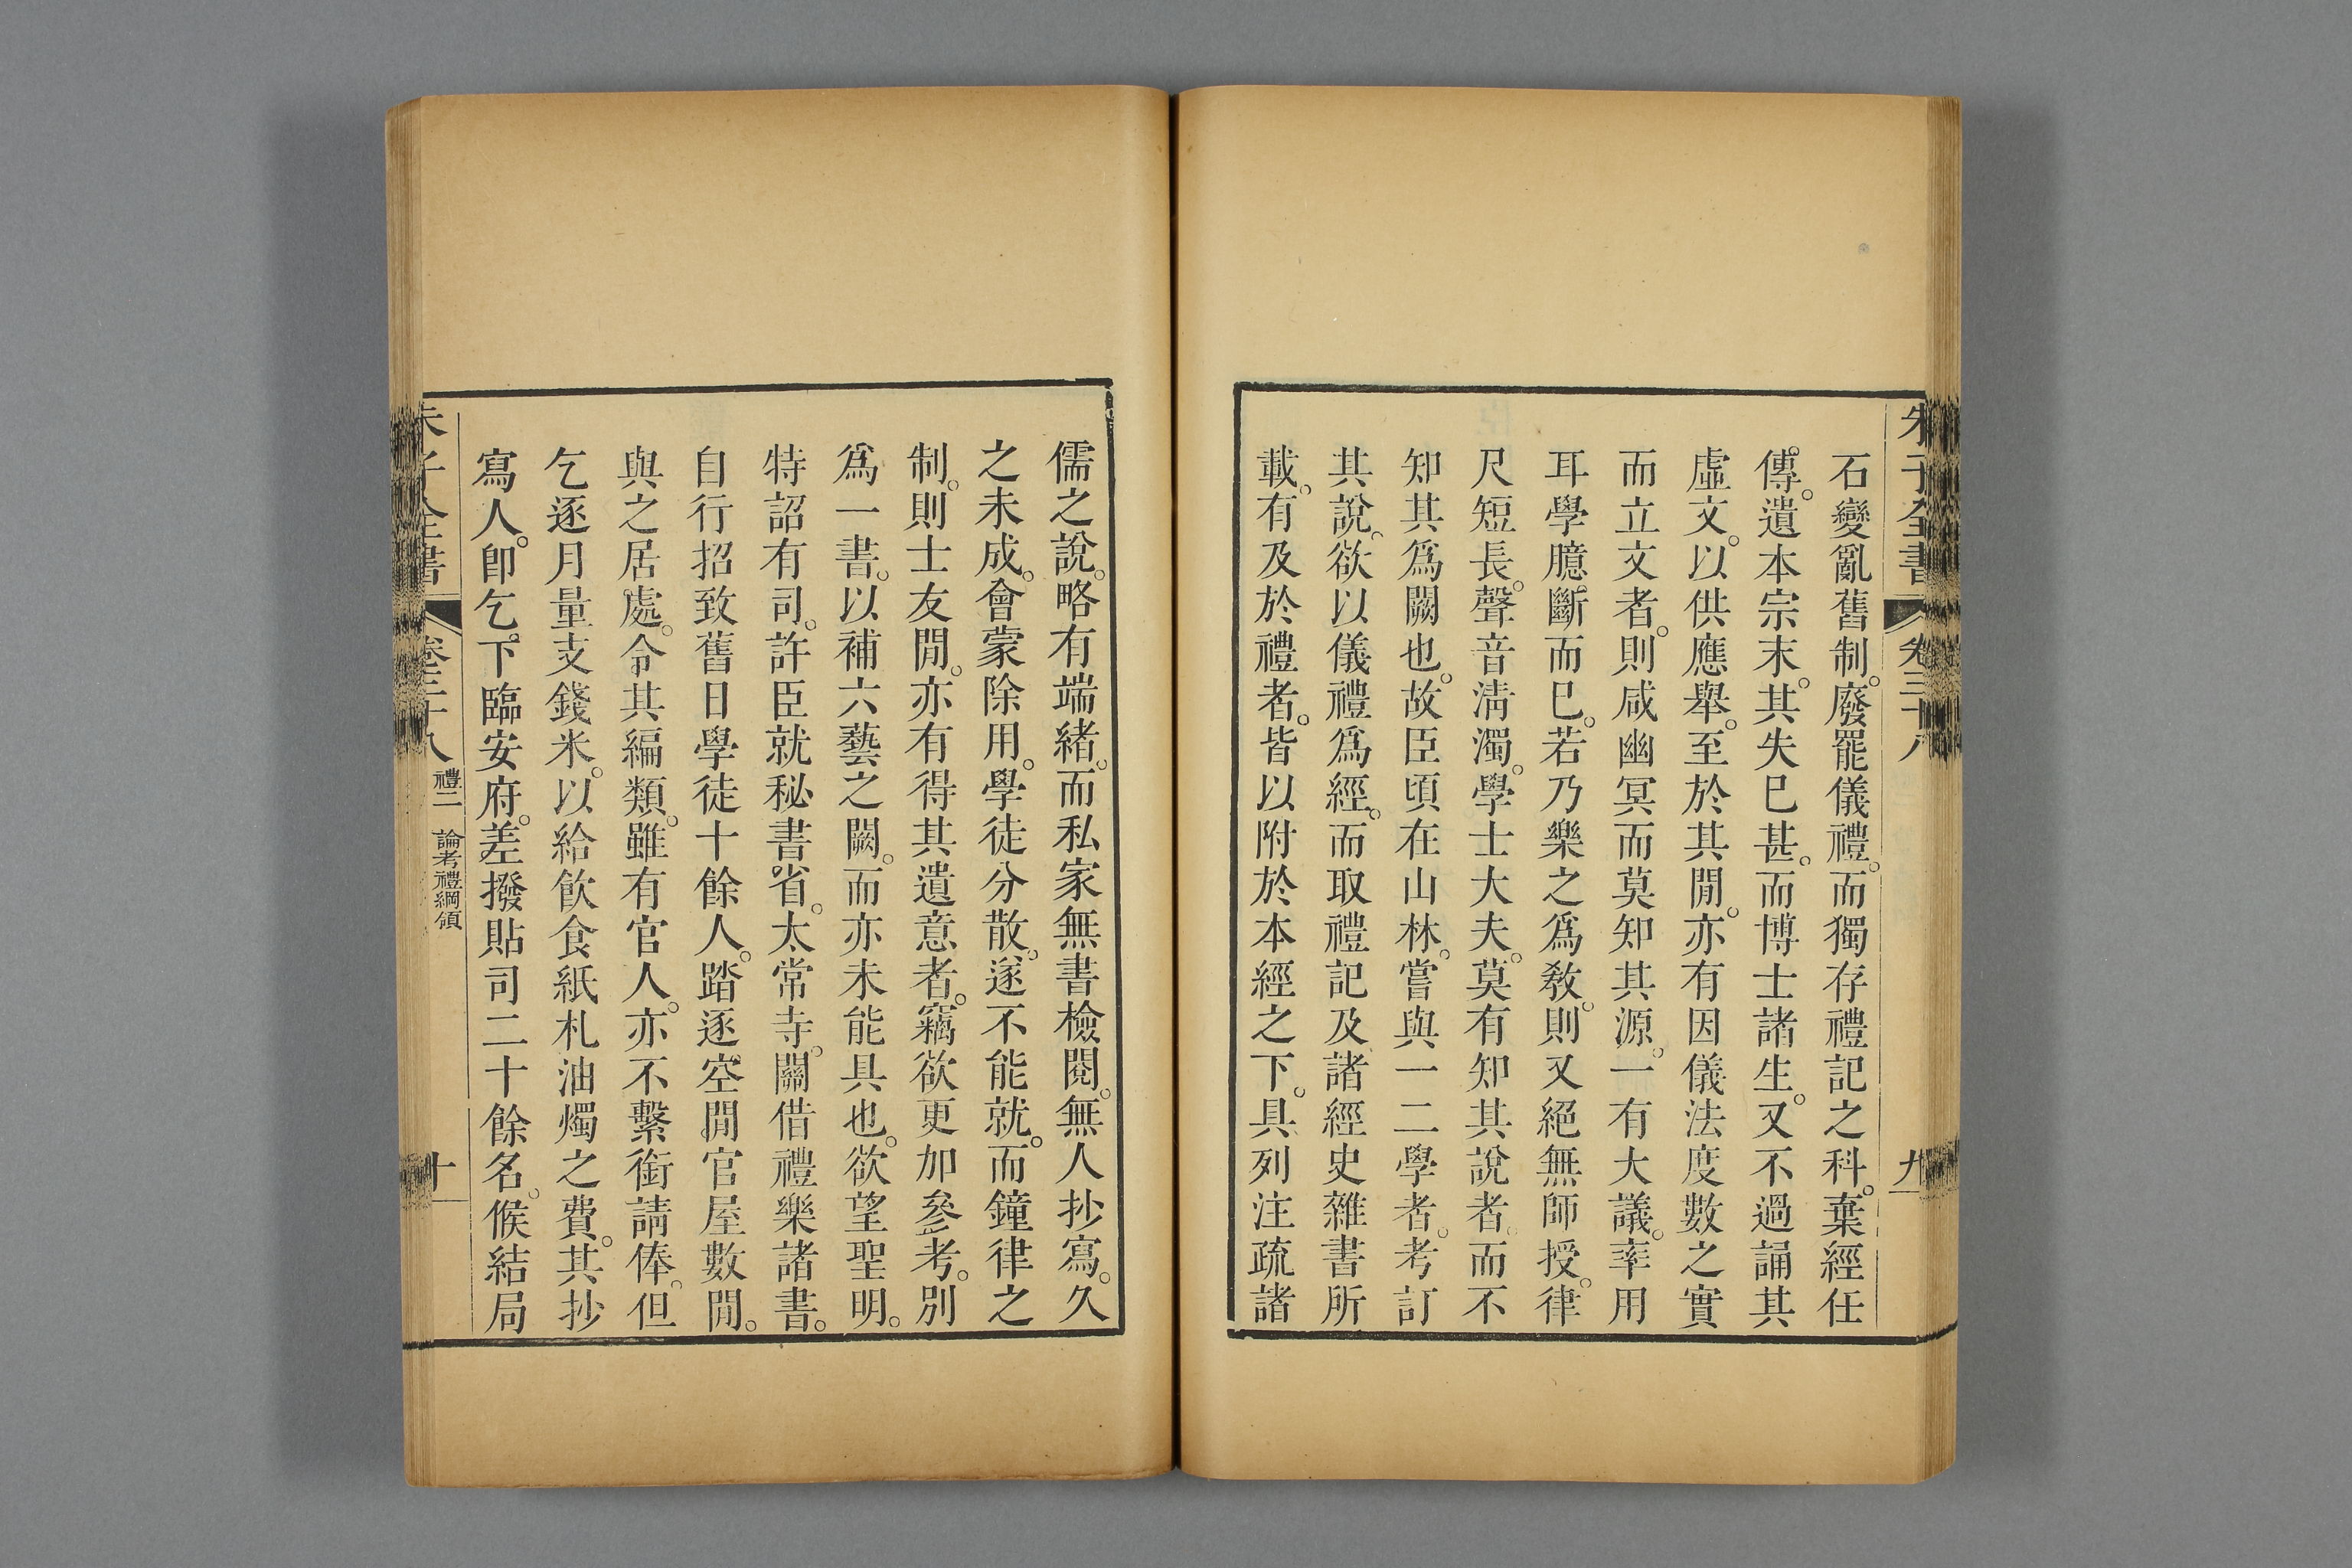 朱子全書 卷三十八 九
石變亂舊制。廢罷儀禮。而獨存禮記之科。棄經任
傳。遺本宗末。其失巳甚。而博士諸生。又不過誦其
虛文。以供應舉。至於其閒。亦有因儀法度數之實
而立文者。則咸幽冥而莫知其源。一有大議。率用
耳學臆斷而巳。若乃樂之爲敎。則又絕無師授。律
尺短長。聲音淸濁。學士大夫。莫有知其說者。而不
知其爲闕也。故臣頃在山林。嘗與一二學者。考訂
其說。欲以儀禮爲經。而取禮記及諸經史雜書所
載。有及於禮者。皆以附於本經之下。具列注疏諸
儒之說。略有端緒。而私家無書檢閱。無人抄寫。久
之未成。會蒙除用。學徒分散。遂不能就。而鐘律之
制。則士友閒。亦有得其遺意者。竊欲更加參考。別
爲一書。以補六藝之闕。而亦未能具也。欲望聖明。
特詔有司。許臣就秘書省。太常寺。關借禮樂諸書。
自行招致舊日學徒十餘人。踏逐空閒官屋數閒。
與之居處。令其編類。雖有官人。亦不繫銜請俸。但
乞逐月量支錢米。以給飮食紙札油燭之費。其抄
寫人。卽乞下臨安府。差撥貼司二十餘名。候結局
朱子全書 卷三十八 禮二 論考禮綱領 十